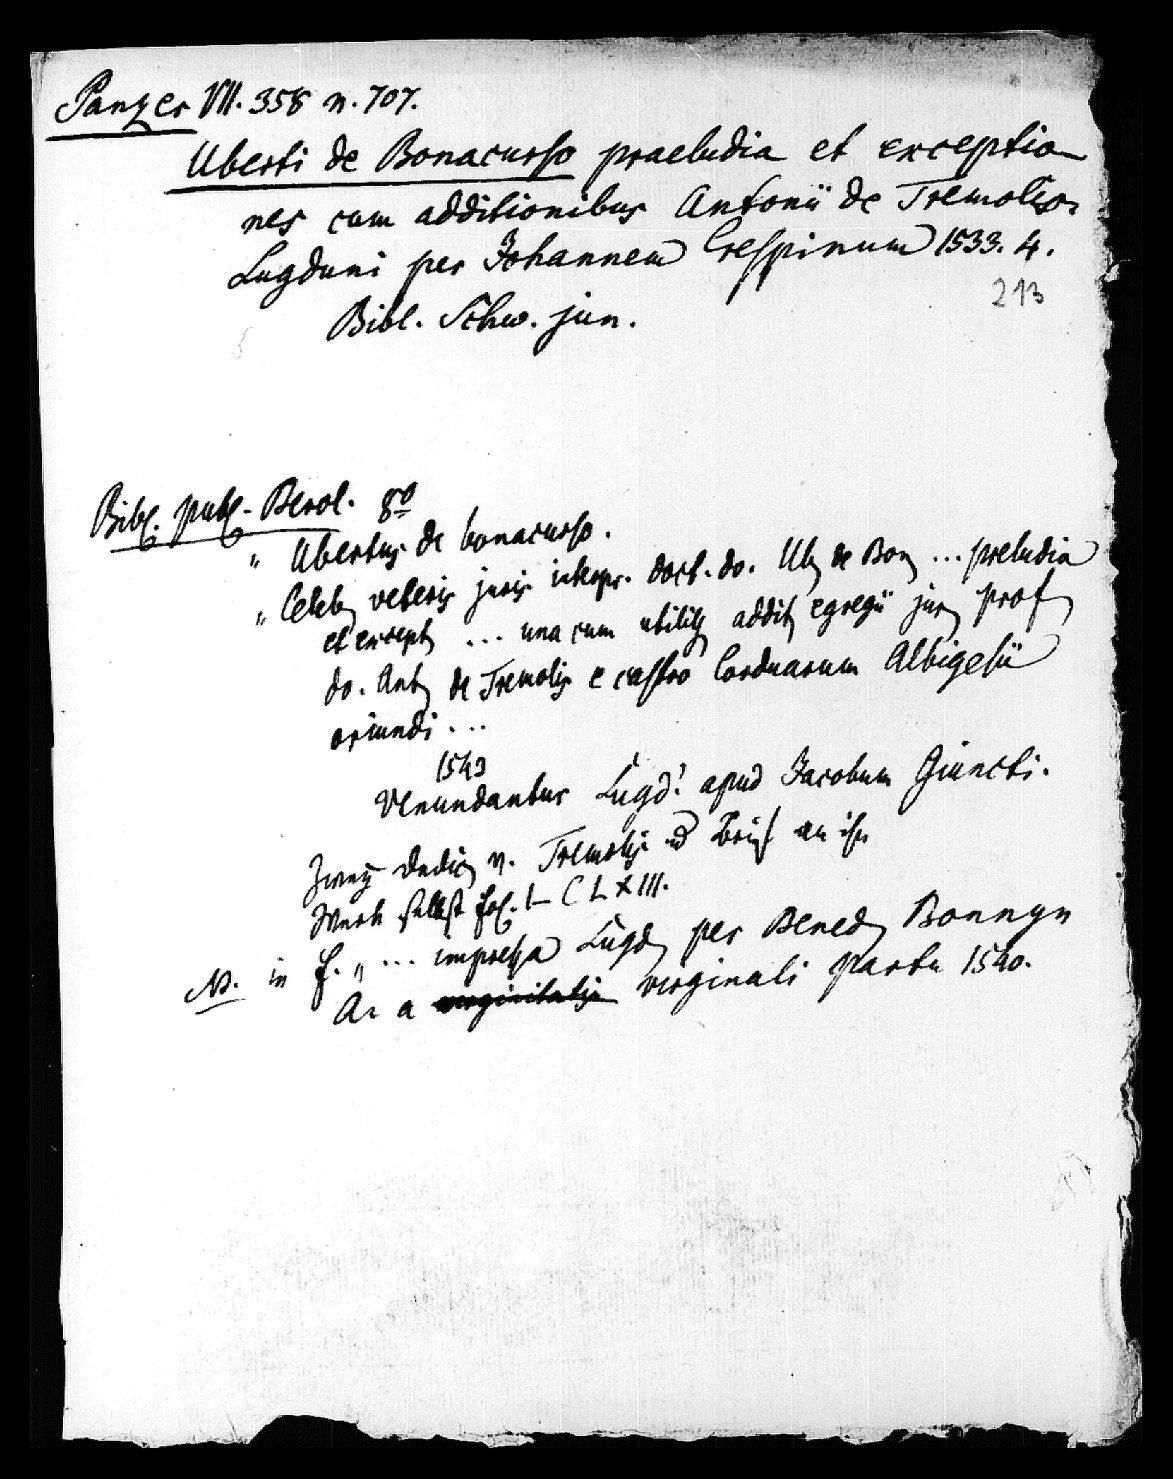 Panzer VII. 358 n. 707.
Uberti de Bonacurso praeludia et exceptio
nes cum additionibus Antonii de Tremolis.
Lugduni per Johannem Crespinum 1533. 4.
213
Bibl. Schw. jun.
Bibl. publ. Berol. 8º
" Ubertus de bonacurso.
" Celeb veteris juris interpr. doct. do. Ub de Bon ... preludia
et except ... una cum utilib addit egregii jur prof
do. Ant de Tremolis e castro Corduarum Albigesii
oriundi ...
1543
Venundantur Lugd. apud Jacobum Giuncti.
Zwey Dedic v. Tremolis Brief an ihn
Werk selbst fol. I-CLXIII.
N. in f. " ... impressa Lugd per Bened Bonnyn
A. a virginitatis virginali partu 1540.